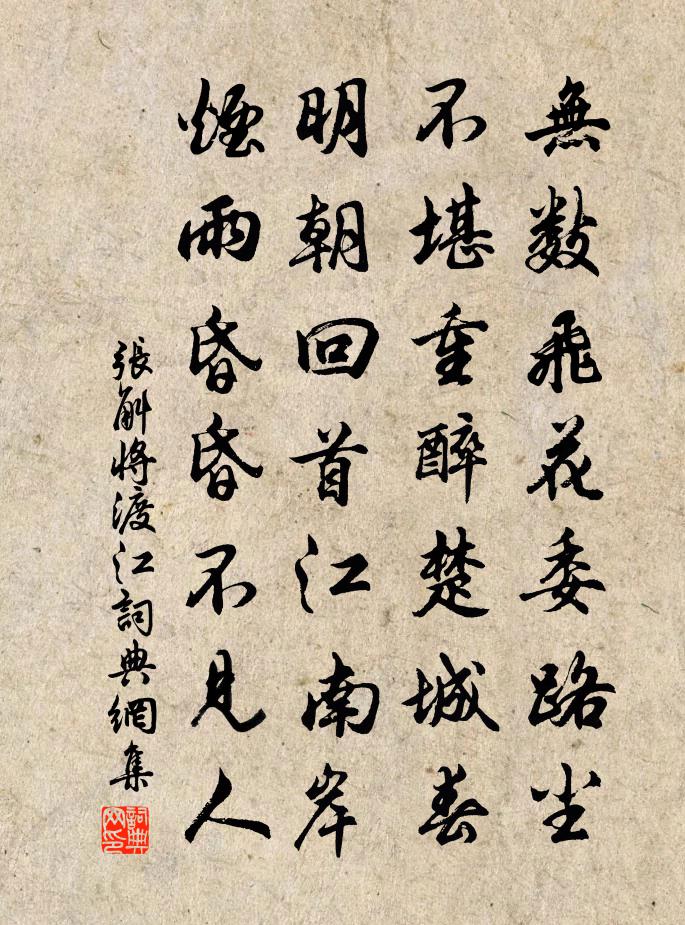 無數飛花委路尘
不堪重醉楚城春
明朝回首江南岸
煙雨昏昏不見人
張斛將渡江詞典網集
詞典網印